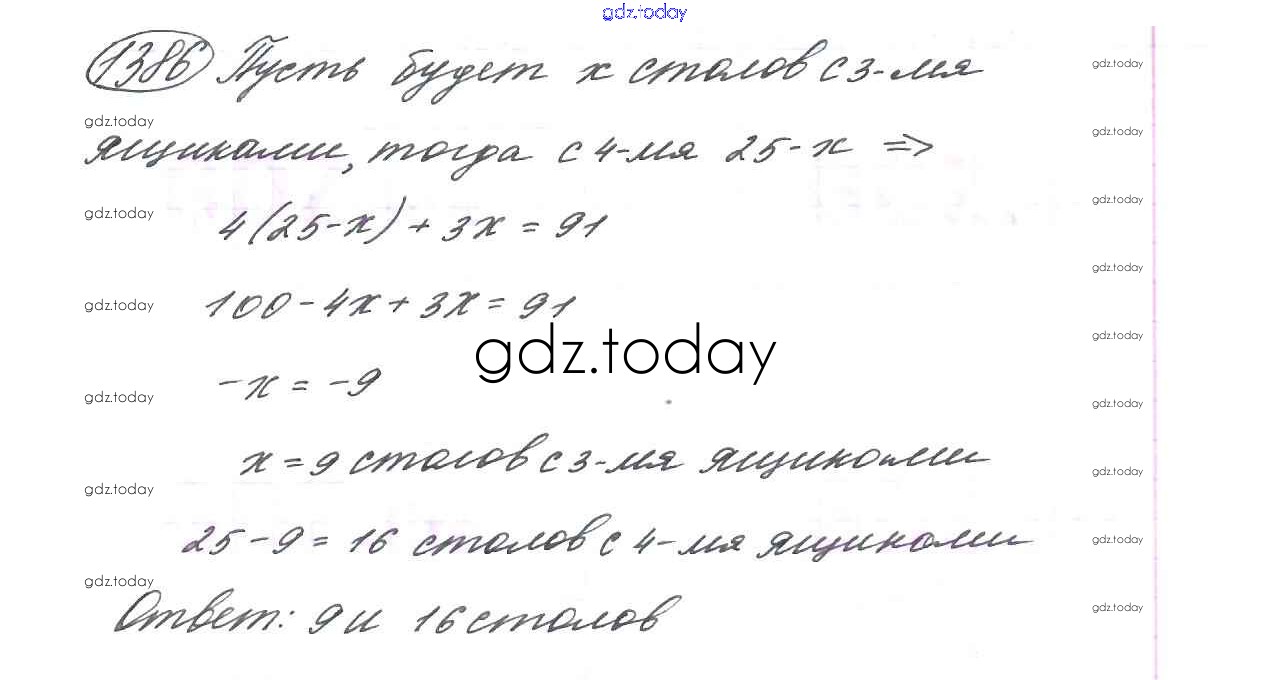 gdz.today
1386 Пусть будет x столов с 3-мя
gdz.today
gdz.today
ящиками, тогда с 4-мя 25-x =>
gdz.today
gdz.today
gdz.today
4(25-x)+3x=91
gdz.today
gdz.today
100-4x+3x=91
gdz.today
gdz.today
-x=-9
gdz.today
gdz.today
x=9 столов с 3-мя ящиками
gdz.today
gdz.today
25-9=16 столов с 4-мя ящиками
gdz.today
gdz.today
Ответ: 9 и 16 столов
gdz.today